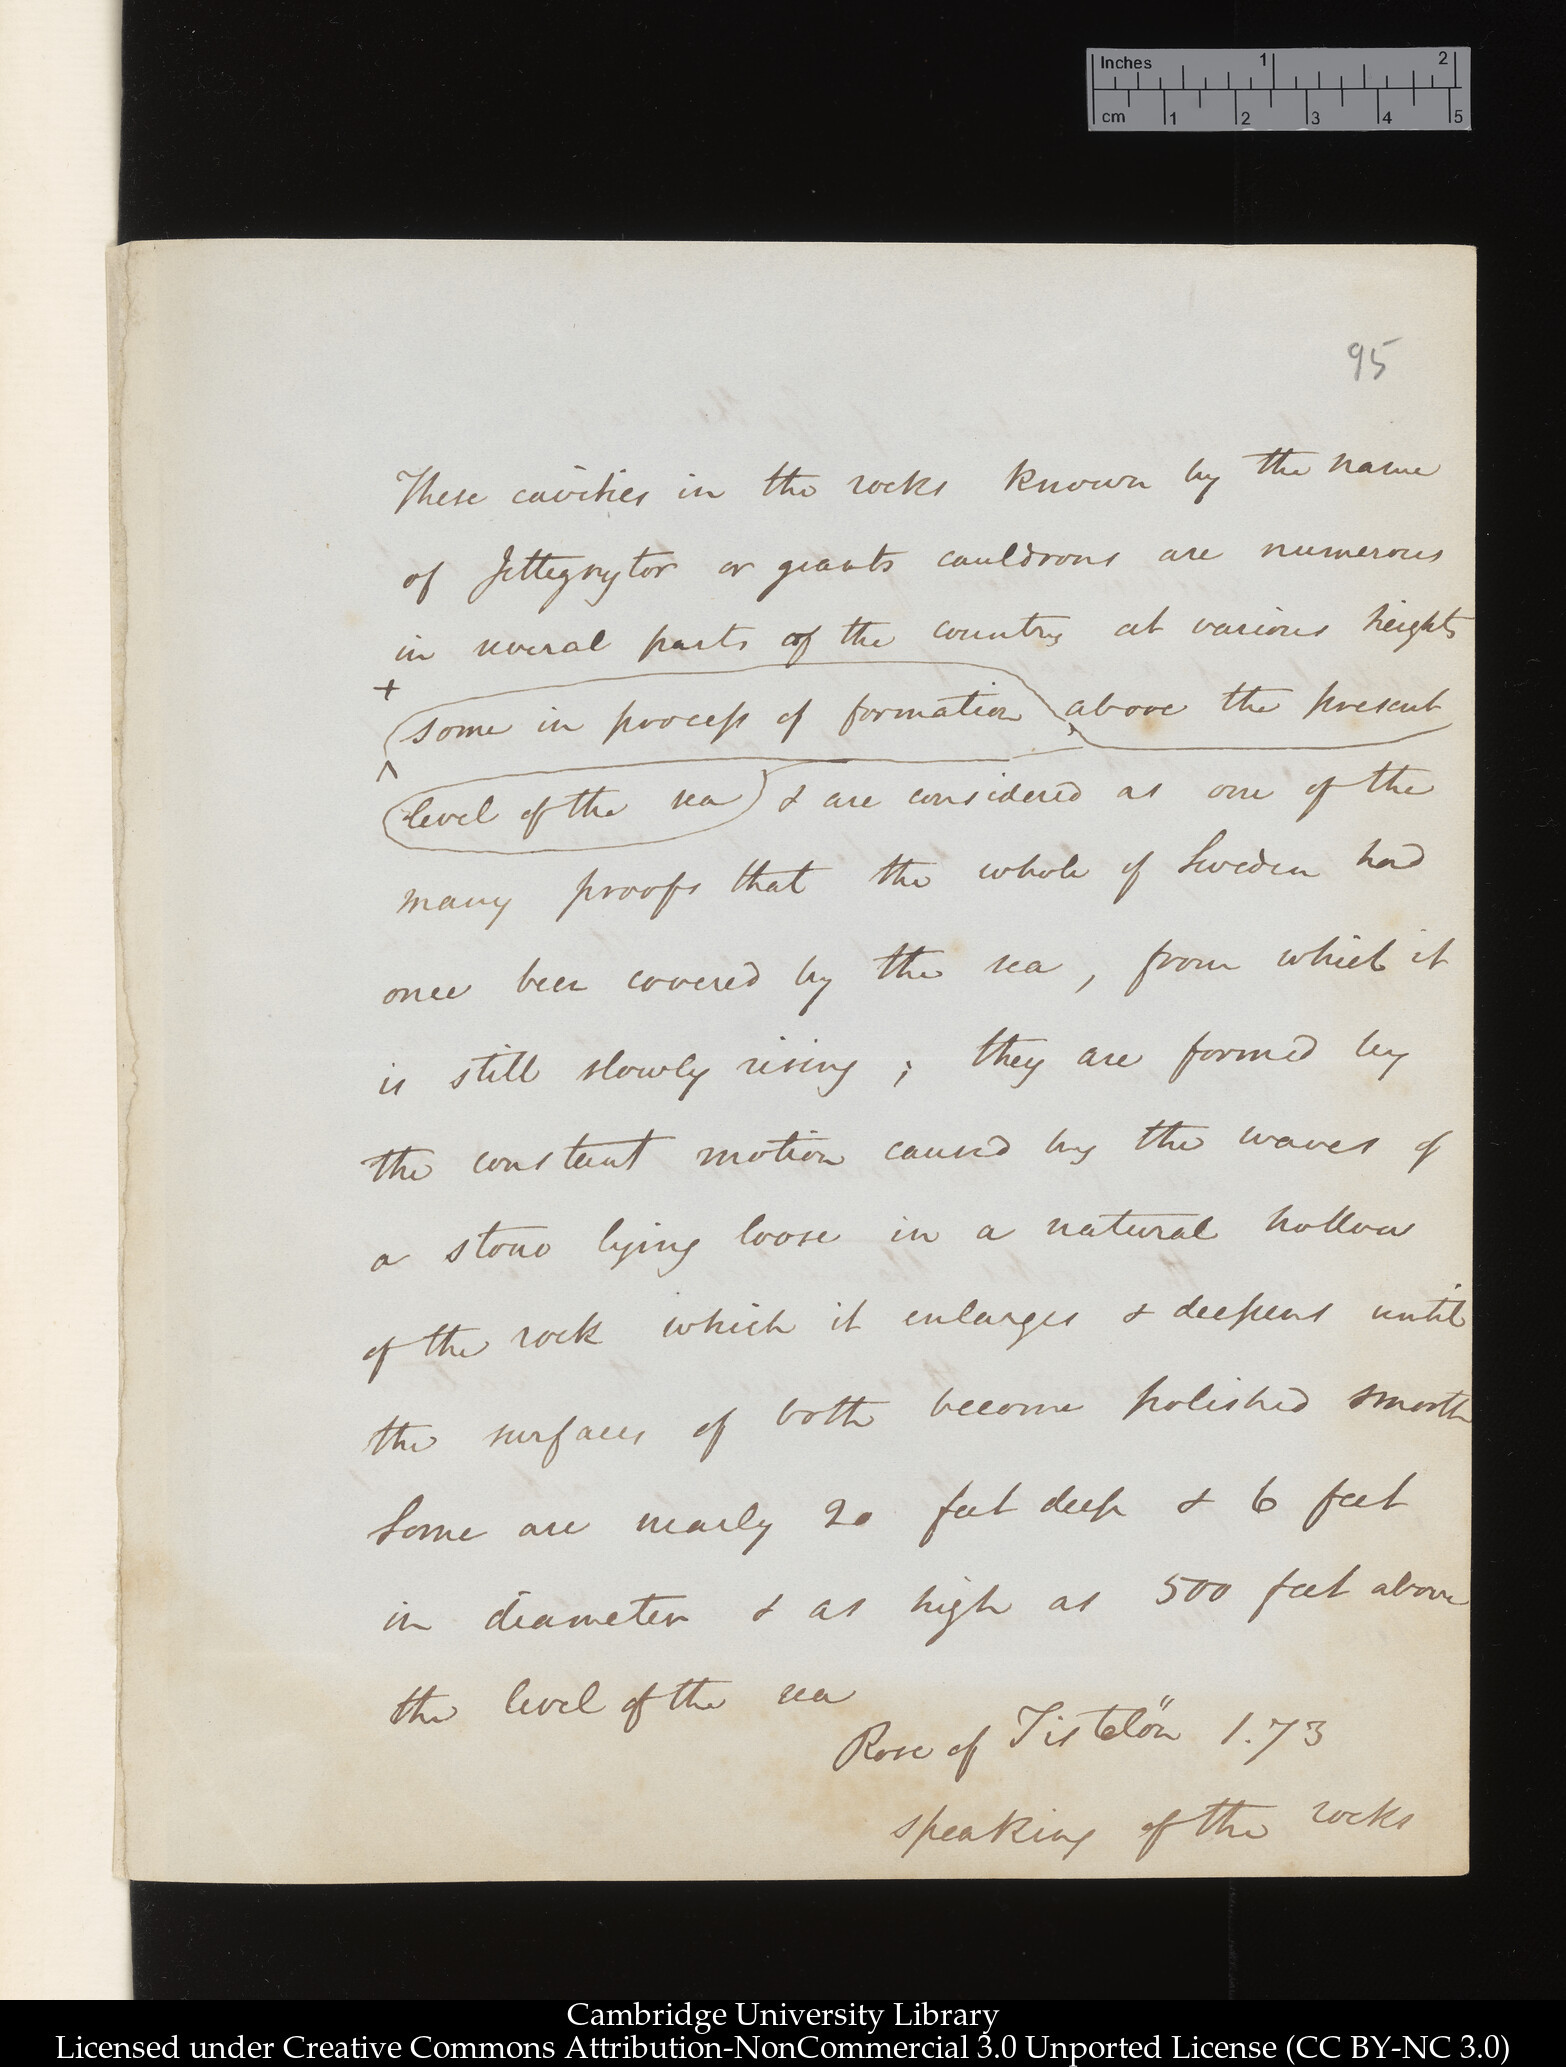 Inches 1 2
cm 1 2 3 4 5
95
These cavities in the rocks known by the name
of Jettegrytor or giants cauldrons are numerous
in several parts of the country at various heights
+
some in process of formation, above the present
^
level of the sea & are considered as one of the
many proofs that the whole of Sweden had
once been covered by the sea, from which it
is still slowly rising; they are formed by
the constant motion caused by the waves of
a stone lying loose in a natural hollow
of the rock which it enlarges & deepens until
the surfaces of both become polished smooth
Some are nearly 20 feet deep & 6 feet
in diameter & as high as 500 feet above
the level of the sea
Rose of Tistelön 1.73
speaking of the rocks
Cambridge University Library
Licensed under Creative Commons Attribution-NonCommercial 3.0 Unported License (CC BY-NC 3.0)